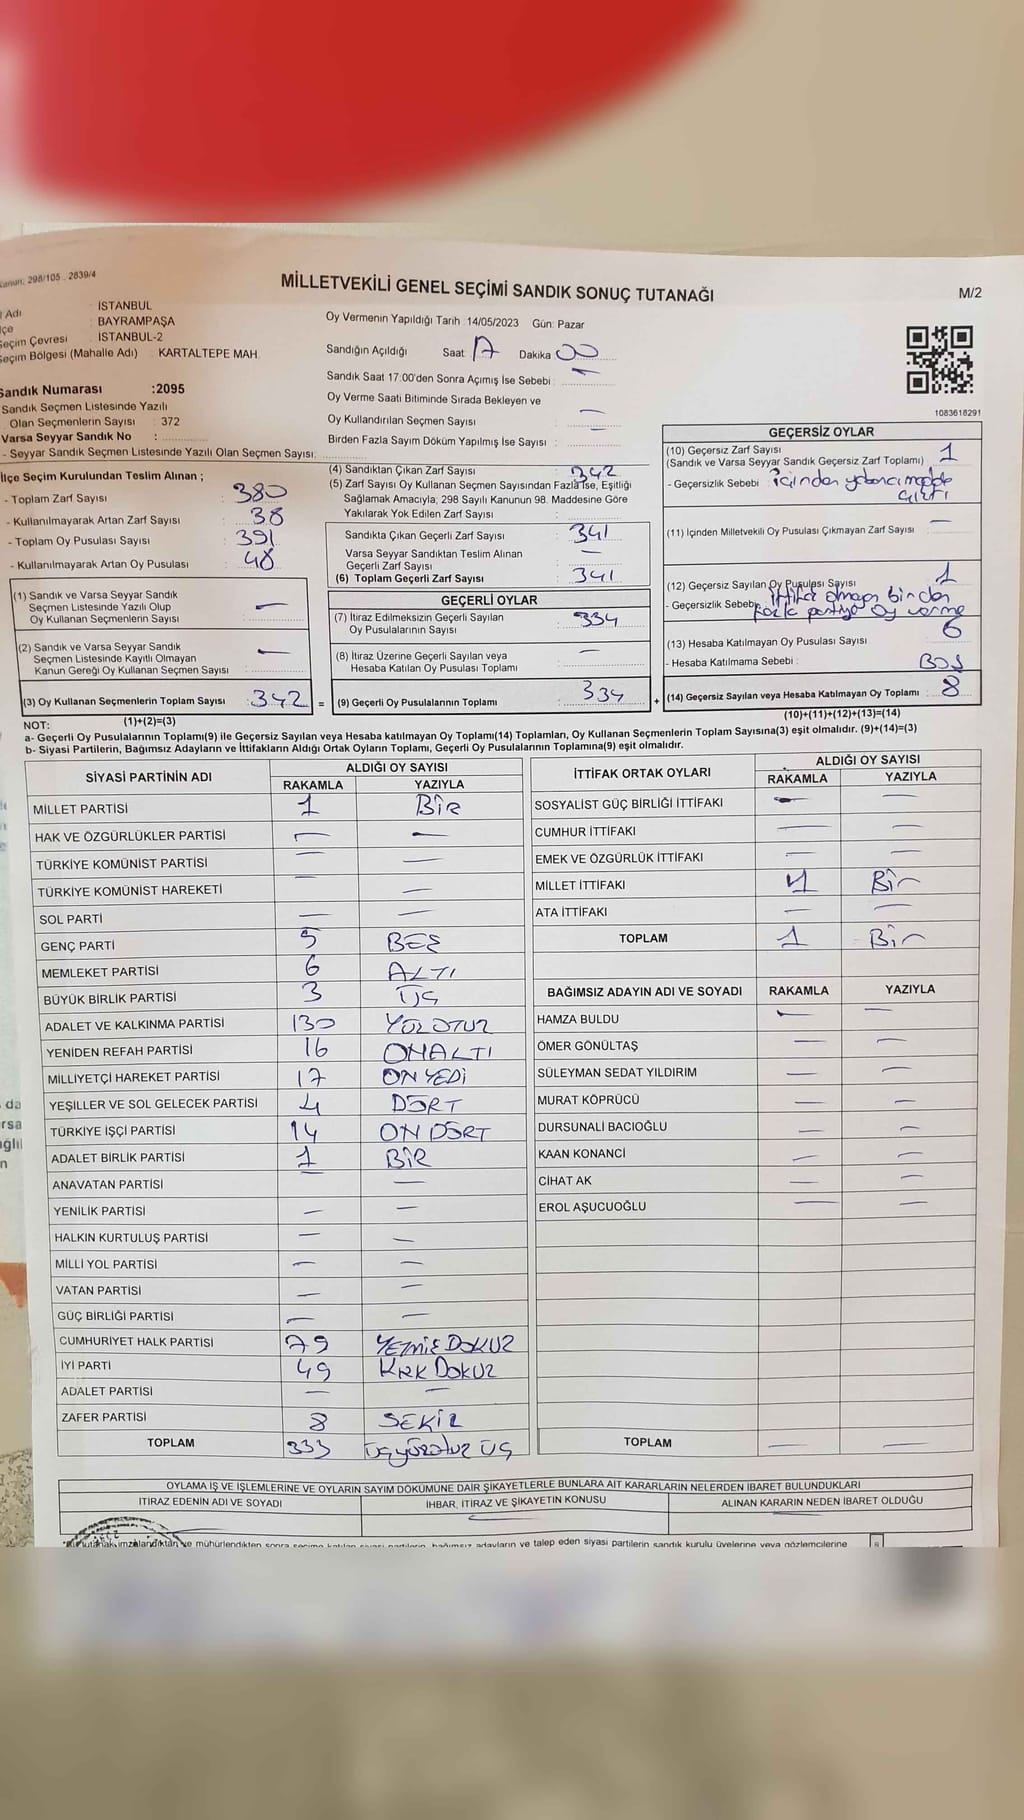 Kanun: 298/105 . 2839/4
MİLLETVEKİLİ GENEL SEÇİMİ SANDIK SONUÇ TUTANAĞI
M/2
Adı : İSTANBUL
: BAYRAMPAŞA
Seçim Çevresi : İSTANBUL-2
Seçim Bölgesi (Mahalle Adı) : KARTALTEPE MAH.
Sandık Numarası :2095
Sandık Seçmen Listesinde Yazılı
Olan Seçmenlerin Sayısı : 372
Varsa Seyyar Sandık No :
- Seyyar Sandık Seçmen Listesinde Yazılı Olan Seçmen Sayısı:
Oy Vermenin Yapıldığı Tarih :14/05/2023 Gün: Pazar
Sandığın Açıldığı Saat 17 Dakika 00
Sandık Saat 17:00'den Sonra Açımış İse Sebebi : —
Oy Verme Saati Bitiminde Sırada Bekleyen ve
Oy Kullandırılan Seçmen Sayısı : —
Birden Fazla Sayım Döküm Yapılmış İse Sayısı : —
1083618291
İlçe Seçim Kurulundan Teslim Alınan ;
- Toplam Zarf Sayısı : 380
- Kullanılmayarak Artan Zarf Sayısı : 38
- Toplam Oy Pusulası Sayısı : 391
- Kullanılmayarak Artan Oy Pusulası : 48
(1) Sandık ve Varsa Seyyar Sandık
Seçmen Listesinde Yazılı Olup
Oy Kullanan Seçmenlerin Sayısı : —
(2) Sandık ve Varsa Seyyar Sandık
Seçmen Listesinde Kayıtlı Olmayan
Kanun Gereği Oy Kullanan Seçmen Sayısı : —
(3) Oy Kullanan Seçmenlerin Toplam Sayısı : 342 =
(1)+(2)=(3)
(4) Sandıktan Çıkan Zarf Sayısı : 342
(5) Zarf Sayısı Oy Kullanan Seçmen Sayısından Fazla İse, Eşitliği
Sağlamak Amacıyla, 298 Sayılı Kanunun 98. Maddesine Göre
Yakılarak Yok Edilen Zarf Sayısı :
Sandıkta Çıkan Geçerli Zarf Sayısı : 341
Varsa Seyyar Sandıktan Teslim Alınan
Geçerli Zarf Sayısı : —
(6) Toplam Geçerli Zarf Sayısı : 341
GEÇERLİ OYLAR
(7) İtiraz Edilmeksizin Geçerli Sayılan
Oy Pusulalarının Sayısı : 334
(8) İtiraz Üzerine Geçerli Sayılan veya
Hesaba Katılan Oy Pusulası Toplamı : —
(9) Geçerli Oy Pusulalarının Toplamı : 334 +
GEÇERSİZ OYLAR
(10) Geçersiz Zarf Sayısı
(Sandık ve Varsa Seyyar Sandık Geçersiz Zarf Toplamı) : 1
- Geçersizlik Sebebi : içinden yabancı madde
çıktı
(11) İçinden Milletvekili Oy Pusulası Çıkmayan Zarf Sayısı : —
(12) Geçersiz Sayılan Oy Pusulası Sayısı : 1
- Geçersizlik Sebebi : ittifak olmayan birden
fazla partiye oy verme
(13) Hesaba Katılmayan Oy Pusulası Sayısı : 6
- Hesaba Katılmama Sebebi : BOŞ
(14) Geçersiz Sayılan veya Hesaba Katılmayan Oy Toplamı : 8
(10)+(11)+(12)+(13)=(14)
NOT:
a- Geçerli Oy Pusulalarının Toplamı(9) ile Geçersiz Sayılan veya Hesaba katılmayan Oy Toplamı(14) Toplamları, Oy Kullanan Seçmenlerin Toplam Sayısına(3) eşit olmalıdır. (9)+(14)=(3)
b- Siyasi Partilerin, Bağımsız Adayların ve İttifakların Aldığı Ortak Oyların Toplamı, Geçerli Oy Pusulalarının Toplamına(9) eşit olmalıdır.
SİYASİ PARTİNİN ADI ALDIĞI OY SAYISI
RAKAMLA YAZIYLA
MİLLET PARTİSİ 1 BİR
HAK VE ÖZGÜRLÜKLER PARTİSİ — —
TÜRKİYE KOMÜNİST PARTİSİ — —
TÜRKİYE KOMÜNİST HAREKETİ — —
SOL PARTİ — —
GENÇ PARTİ 5 BEŞ
MEMLEKET PARTİSİ 6 ALTI
BÜYÜK BİRLİK PARTİSİ 3 ÜÇ
ADALET VE KALKINMA PARTİSİ 130 YÜZOTUZ
YENİDEN REFAH PARTİSİ 16 ONALTI
MİLLİYETÇİ HAREKET PARTİSİ 17 ON YEDİ
YEŞİLLER VE SOL GELECEK PARTİSİ 4 DÖRT
TÜRKİYE İŞÇİ PARTİSİ 14 ON DÖRT
ADALET BİRLİK PARTİSİ 1 BİR
ANAVATAN PARTİSİ — —
YENİLİK PARTİSİ — —
HALKIN KURTULUŞ PARTİSİ — —
MİLLİ YOL PARTİSİ — —
VATAN PARTİSİ — —
GÜÇ BİRLİĞİ PARTİSİ — —
CUMHURİYET HALK PARTİSİ 79 YETMİŞ DOKUZ
İYİ PARTİ 49 KIRK DOKUZ
ADALET PARTİSİ — —
ZAFER PARTİSİ 8 SEKİZ
TOPLAM 333 üçyüzotuz üç
İTTİFAK ORTAK OYLARI ALDIĞI OY SAYISI
RAKAMLA YAZIYLA
SOSYALİST GÜÇ BİRLİĞİ İTTİFAKI — —
CUMHUR İTTİFAKI — —
EMEK VE ÖZGÜRLÜK İTTİFAKI — —
MİLLET İTTİFAKI 1 Bir
ATA İTTİFAKI — —
TOPLAM 1 Bir
BAĞIMSIZ ADAYIN ADI VE SOYADI RAKAMLA YAZIYLA
HAMZA BULDU — —
ÖMER GÖNÜLTAŞ — —
SÜLEYMAN SEDAT YILDIRIM — —
MURAT KÖPRÜCÜ — —
DURSUNALİ BACIOĞLU — —
KAAN KONANCİ — —
CİHAT AK — —
EROL AŞUCUOĞLU — —
TOPLAM — —
OYLAMA İŞ VE İŞLEMLERİNE VE OYLARIN SAYIM DÖKÜMÜNE DAİR ŞİKAYETLERLE BUNLARA AİT KARARLARIN NELERDEN İBARET BULUNDUKLARI
İTİRAZ EDENİN ADI VE SOYADI İHBAR, İTİRAZ VE ŞİKAYETİN KONUSU ALINAN KARARIN NEDEN İBARET OLDUĞU